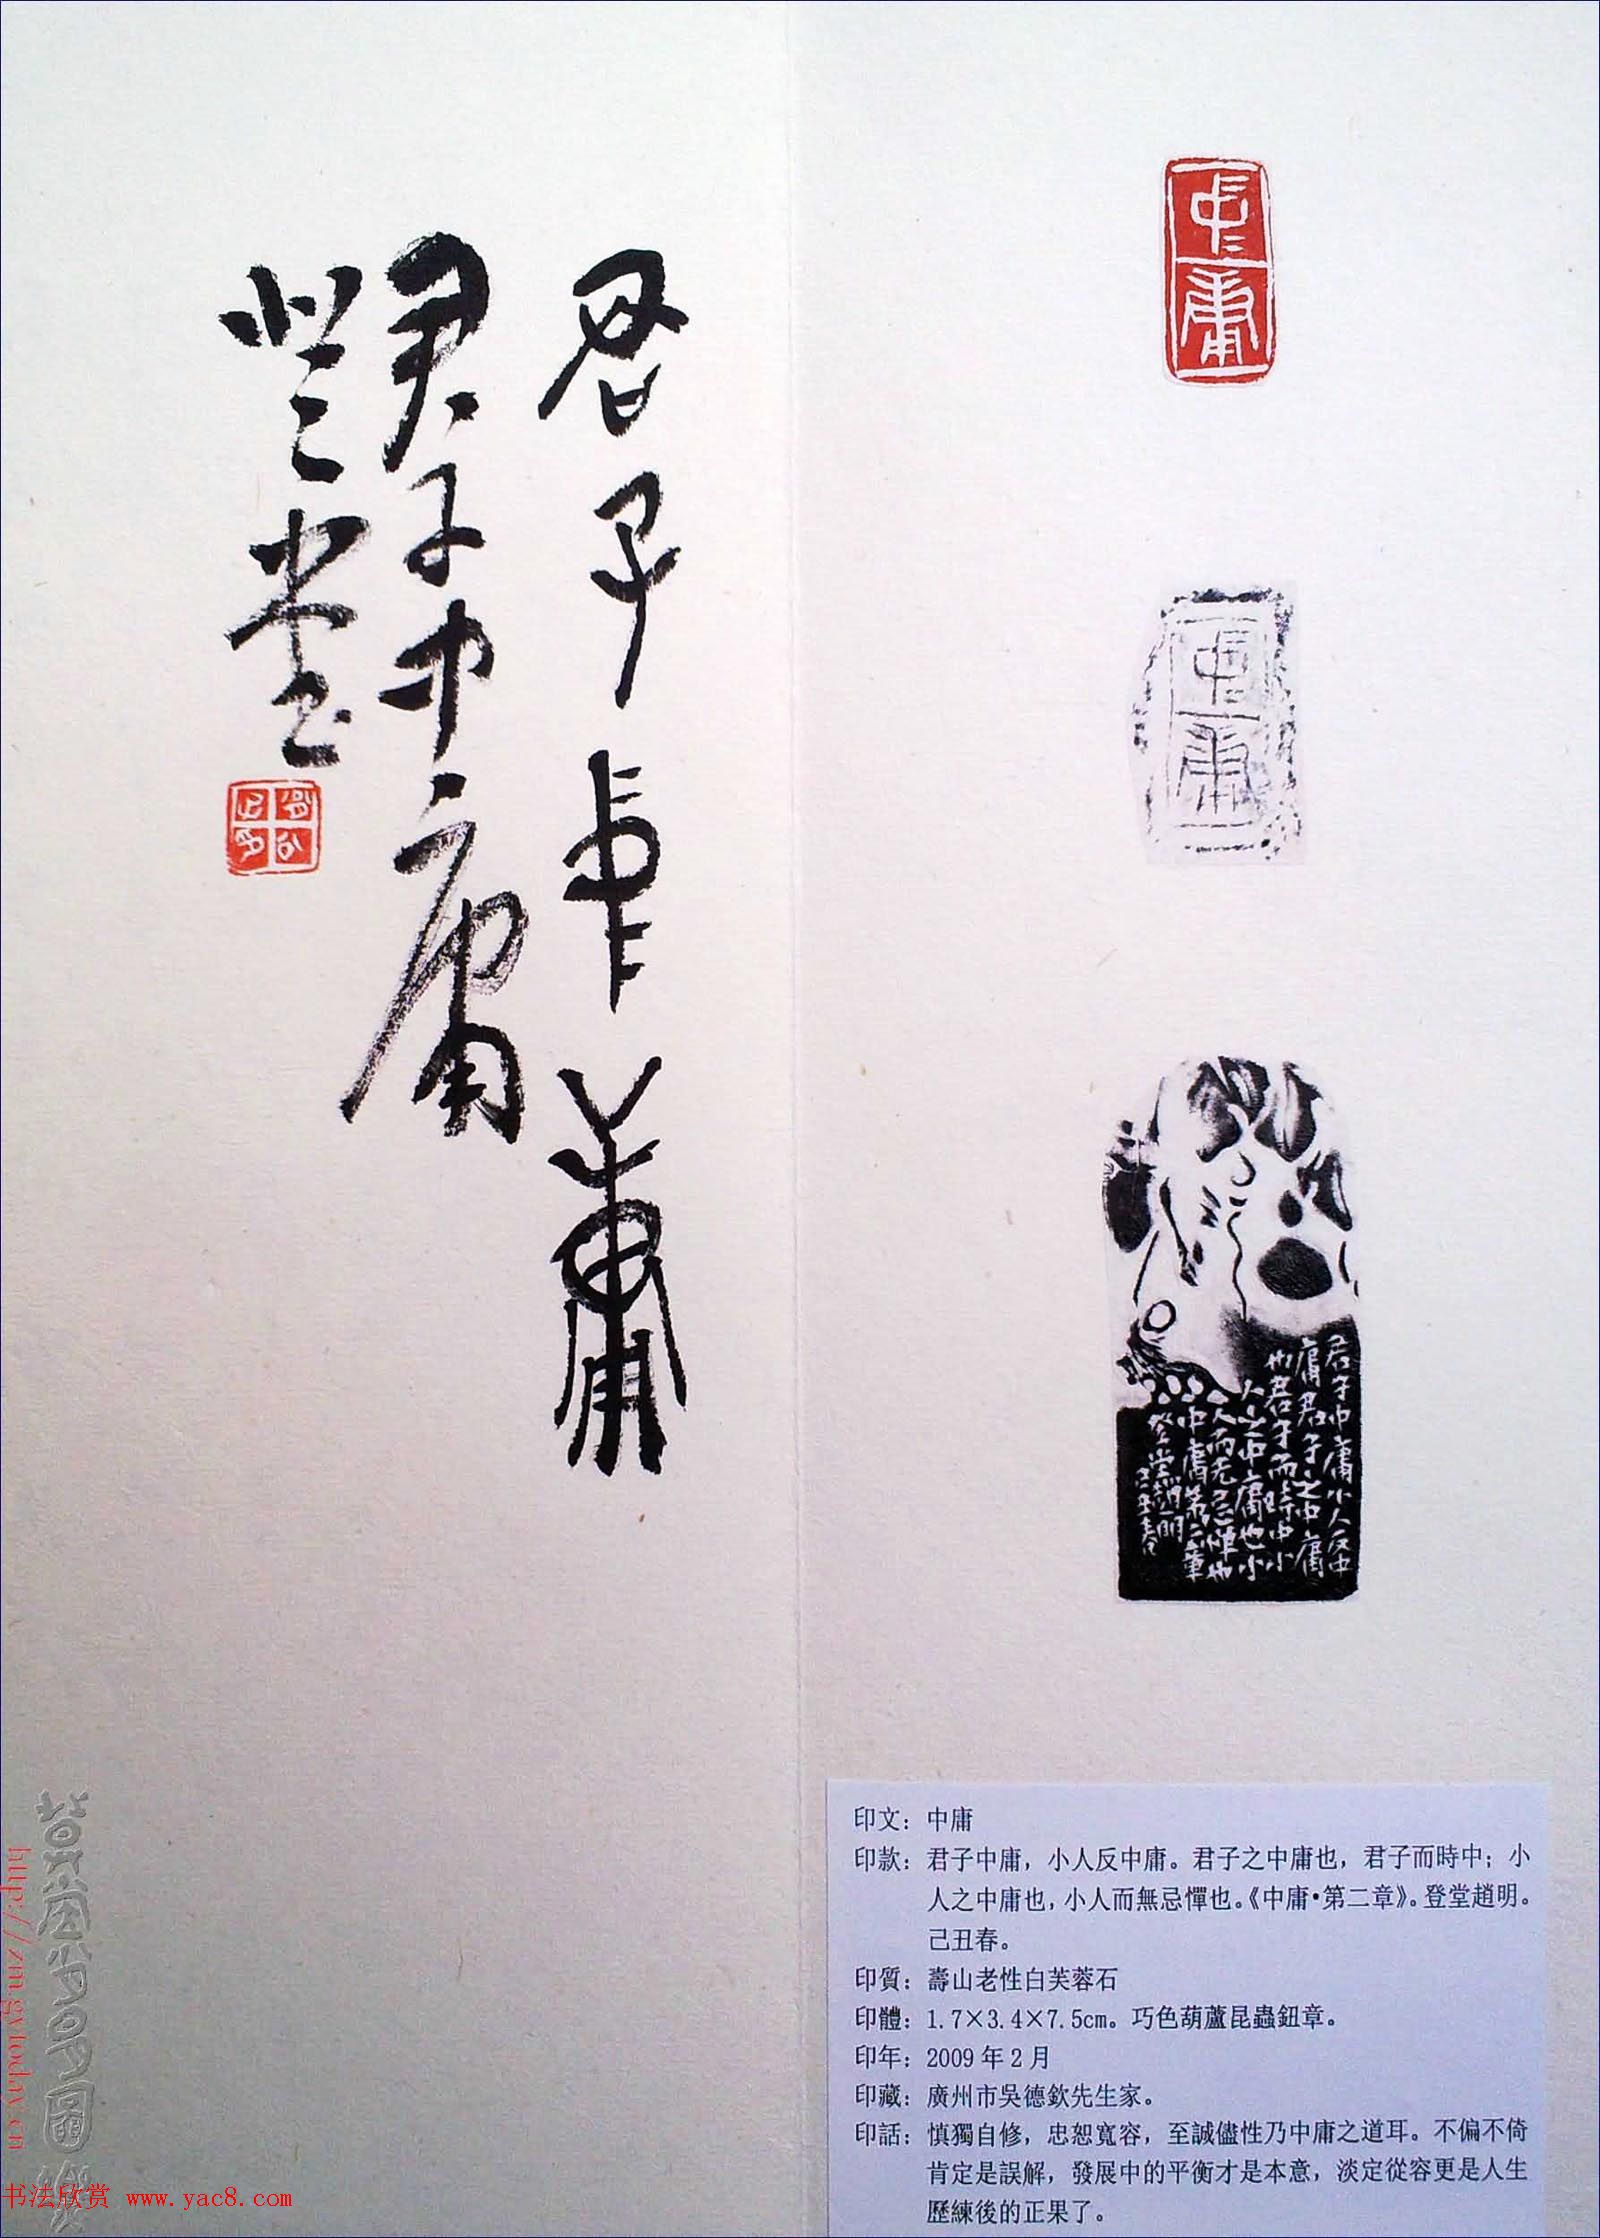 君子中庸
君子中庸
登堂
中庸
中庸
君子中庸小人反中
庸君子之中庸
也君子而時中小
人之中庸也小
人而无忌憚也
中庸第二章
登堂趙明
己丑春
印文：中庸
印款：君子中庸，小人反中庸。君子之中庸也，君子而時中；小
人之中庸也，小人而無忌憚也。《中庸•第二章》。登堂趙明。
己丑春。
印質：壽山老性白芙蓉石
印體：1.7×3.4×7.5cm。巧色葫蘆昆蟲鈕章。
印年：2009年2月
印藏：廣州市吳德欽先生家。
印話：慎獨自修，忠恕寬容，至誠儘性乃中庸之道耳。不偏不倚
肯定是誤解，發展中的平衡才是本意，淡定從容更是人生
歷練後的正果了。
http://zmgytoday.cn
书法欣赏 www.yac8.com